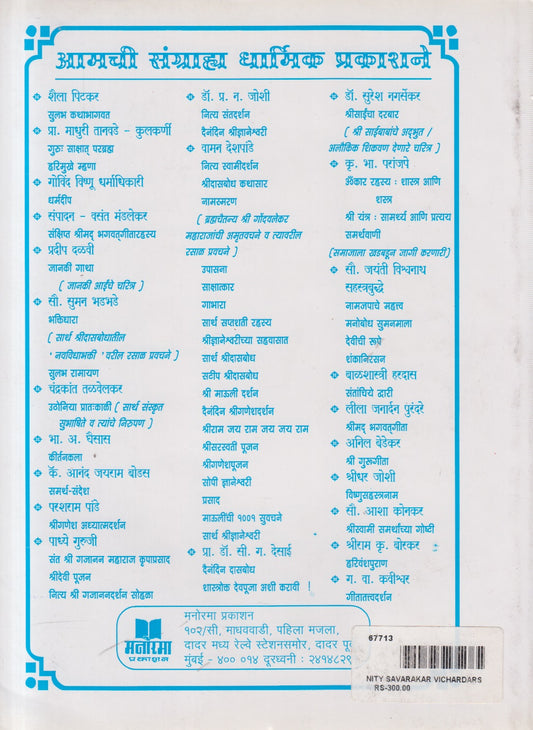 आमची संग्राह्य धार्मिक प्रकाशने
शैला पिटकर
सुलभ कथाभागवत
प्रा. माधुरी तानवडे - कुलकर्णी
गुरुः साक्षात् परब्रह्म
हरिमुखे म्हणा
गोविंद विष्णू धर्माधिकारी
धर्मदीप
संपादन - वसंत मंडलेकर
संक्षिप्त श्रीमद् भगवद्गीतारहस्य
प्रदीप दळवी
जानकी गाथा
( जानकी आईचे चरित्र )
सौ. सुमन भडभडे
भक्तिधारा
( सार्थ श्रीदासबोधातील
'नवविधाभक्ती' वरील रसाळ प्रवचने )
सुलभ रामायण
चंद्रकांत तळवेलकर
उठोनिया प्रातःकाळी ( सार्थ संस्कृत
सुभाषिते व त्यांचे निरुपण )
भा. अ. घैसास
कीर्तनकला
कॅ. आनंद जयराम बोडस
समर्थ-संदेश
परशराम पांडे
श्रीगणेश अध्यात्मदर्शन
पाध्ये गुरुजी
संत श्री गजानन महाराज कृपाप्रसाद
श्रीदेवी पूजन
नित्य श्री गजाननदर्शन सोहळा
डॉ. प्र. न. जोशी
नित्य संतदर्शन
दैनंदिन श्रीज्ञानेश्वरी
वामन देशपांडे
नित्य स्वामीदर्शन
श्रीदासबोध कथासार
नामस्मरण
( ब्रह्मचैतन्य श्री गोंदवलेकर
महाराजांची अमृतवचने व त्यावरील
रसाळ प्रवचने )
उपासना
साक्षात्कार
गाभारा
सार्थ सप्तशती रहस्य
श्रीज्ञानेश्वरीच्या सहवासात
सार्थ श्रीदासबोध
सटीप श्रीदासबोध
श्री माऊली दर्शन
दैनंदिन श्रीगणेशदर्शन
श्रीराम जय राम जय जय राम
श्रीसरस्वती पूजन
श्रीगणेशपूजन
सोपी ज्ञानेश्वरी
प्रसाद
माऊलींची १००१ सुवचने
सार्थ श्रीज्ञानेश्वरी
प्रा. डॉ. सी. ग. देसाई
दैनंदिन दासबोध
शास्त्रोक्त देवपूजा अशी करावी !
डॉ. सुरेश नगर्सेकर
श्रीसाईंचा दरबार
( श्री साईबाबांचे अद्भुत /
अलौकिक शिकवण देणारे चरित्र )
कृ. भा. परांजपे
ॐकार रहस्य : शास्त्र आणि
शस्त्र
श्री यंत्र : सामर्थ्य आणि प्रत्यय
समर्थवाणी
(समाजाला खडबडून जागी करणारी)
सौ. जयंती विश्वनाथ
सहस्त्रबुद्धे
नामजपाचे महत्त्व
मनोबोध सुमनमाला
देवीची रूपे
शंकानिरसन
बाळशास्त्री हरदास
संतांचिये द्वारी
लीला जनार्दन पुरंदरे
श्रीमद् भगवत्गीता
अनिल बेडेकर
श्री गुरुगीता
श्रीधर जोशी
विष्णुसहस्त्रनाम
सौ. आशा कोनकर
श्रीस्वामी समर्थांच्या गोष्टी
श्रीराम कृ. बोरकर
हरिवंशपुराण
ग. वा. कवीश्वर
गीतातत्त्वदर्शन
मनोरमा
प्रकाशन
मनोरमा प्रकाशन
१०२/सी, माधववाडी, पहिला मजला,
दादर मध्य रेल्वे स्टेशनसमोर, दादर पू
मुंबई - ४०० ०१४ दूरध्वनी : २४१४८२९
67713
NITY SAVARAKAR VICHARDARS
RS-300.00